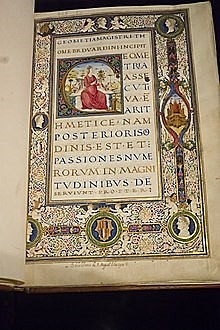 GEOMETIA MAGISTRE TH
OME BRDVARDINI INCIPIT
GEOME
TRIA
ASSE
CVTI
VA E
ARIT
HMETICE · NAM
POSTERIORIS O
DINIS EST · ET ·
PASSIONES NVME
RORVM IN MAGNI
TVDINIBVS DE
SERVIVNT · PROPTER I